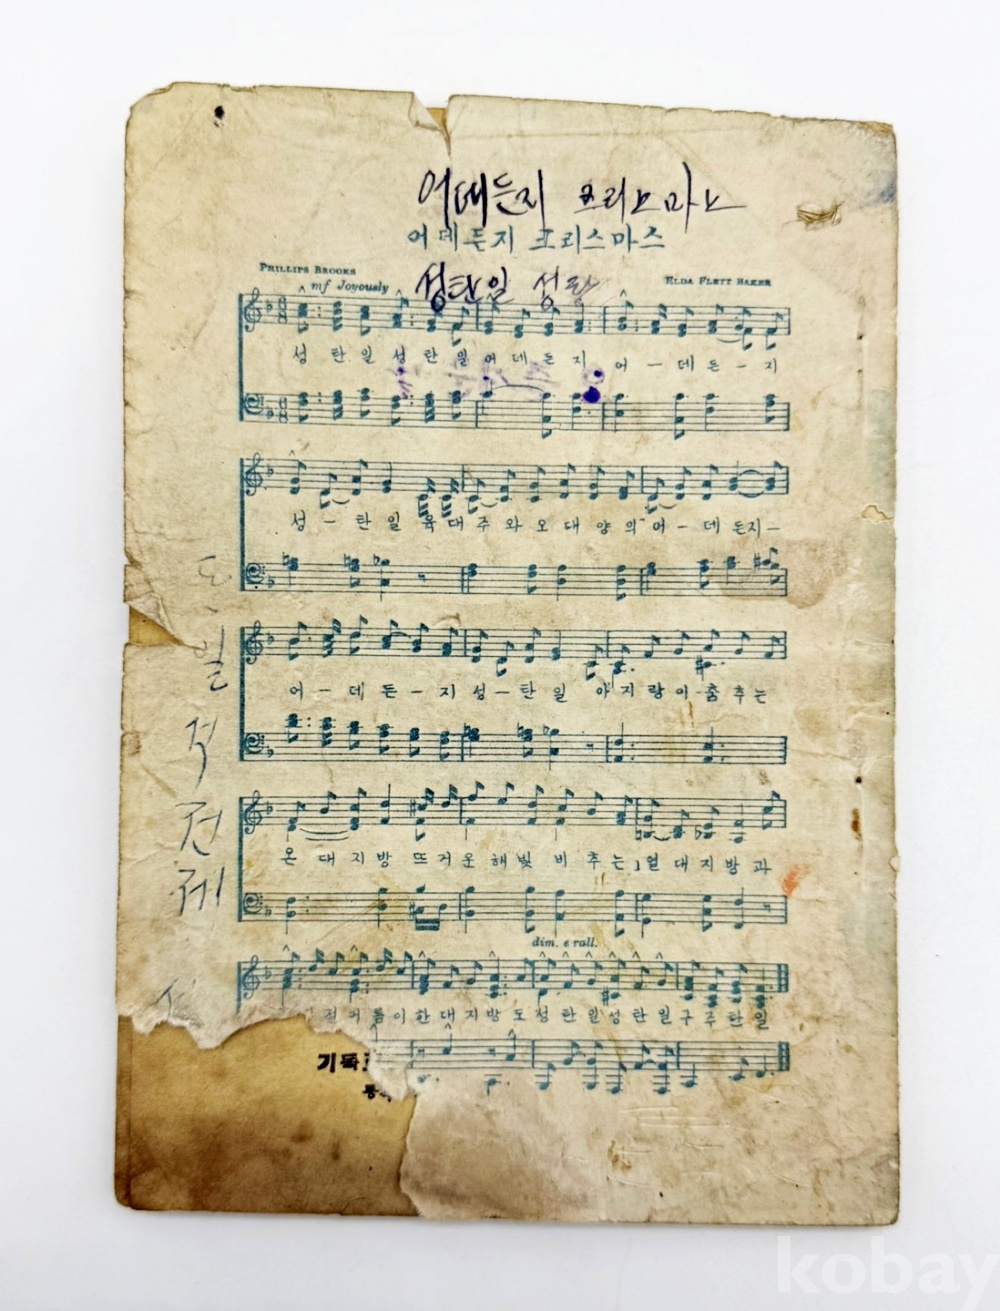 어데든지 크리스마스
어데든지 크리스마스
PHILLIPS BROOKS
mf Joyously
성탄일 성탄
ELDA FLETT BAKER
성 탄 일 성 탄 일 어 데 든 지 어 - 데 든 - 지
성 - 탄 일 육 대 주 와 오 대 양 의 어 - 데 든 지 -
어 - 데 든 - 지 성 - 탄 일 아 지 랑 이 - 춤 추 는
온 대 지 방 뜨 거 운 해 빛 비 추 는 열 대 지 방 과
dim. e rall.
이 한 대 지 방 도 성 탄 일 성 탄 일 구 주 탄 일
기독
kobay